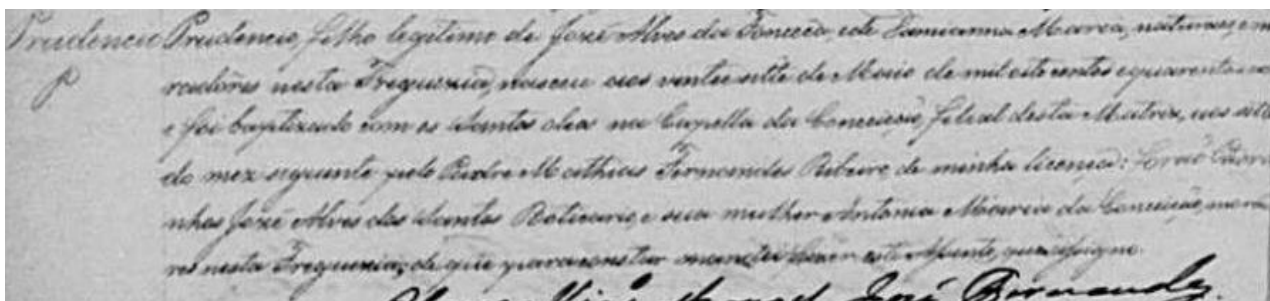 Prudencio Prudencio, filho legitimo de José Alves da Fonseca, e de Damianna Maria, naturaes, e mo
P radores nesta Freguezia, nasceu aos vinte sete de Maio de mil oito centos e quarenta e
e foi baptizado com os Santos oleos na Capella da Conceição, filial desta Matriz, aos sete
do mez seguinte pelo Padre Mathias Fernandes Ribeiro de minha licença: Forão Padri
nhos José Alves dos Santos Boticario, e sua mulher Antonia Maria da Conceição, morado
res nesta Freguezia, de que para constar mandei fazer este Assento, que assigno.
Manoel José Fernandes